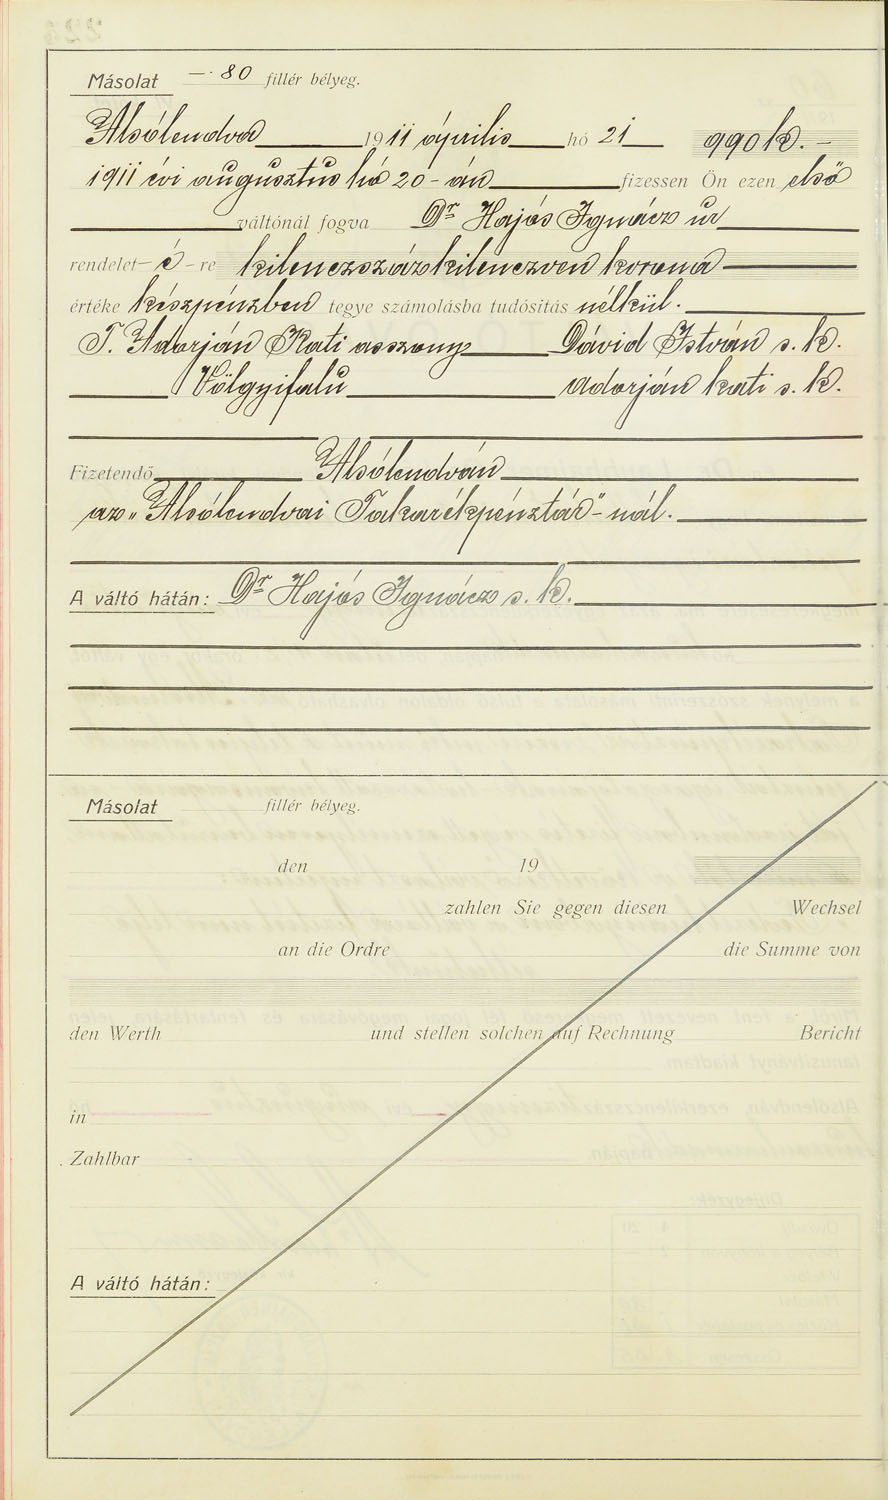 Másolat —·80 fillér bélyeg.
Alsólendva 1911 április hó 21 990 K. –
1911 évi augusztus hó 20-án fizessen Ön ezen első
váltónál fogva Dr Hajós Ignácz úr
rendelet-é-re kilenczszázkilenczven korona
értéke készpénzben tegye számolásba tudósitás nélkül.
T. Adorján Kati asszony Dávid István s. k.
Völgyifalu Adorján Kati s. k.
Fizetendő Alsólendván
az „Alsólendvai Takarékpénztár"-nál.
A váltó hátán: Dr Hajós Ignácz s. k.
Másolat fillér bélyeg.
den 19
zahlen Sie gegen diesen Wechsel
an die Ordre die Summe von
den Werth und stellen solchen auf Rechnung Bericht
in
Zahlbar
A váltó hátán: